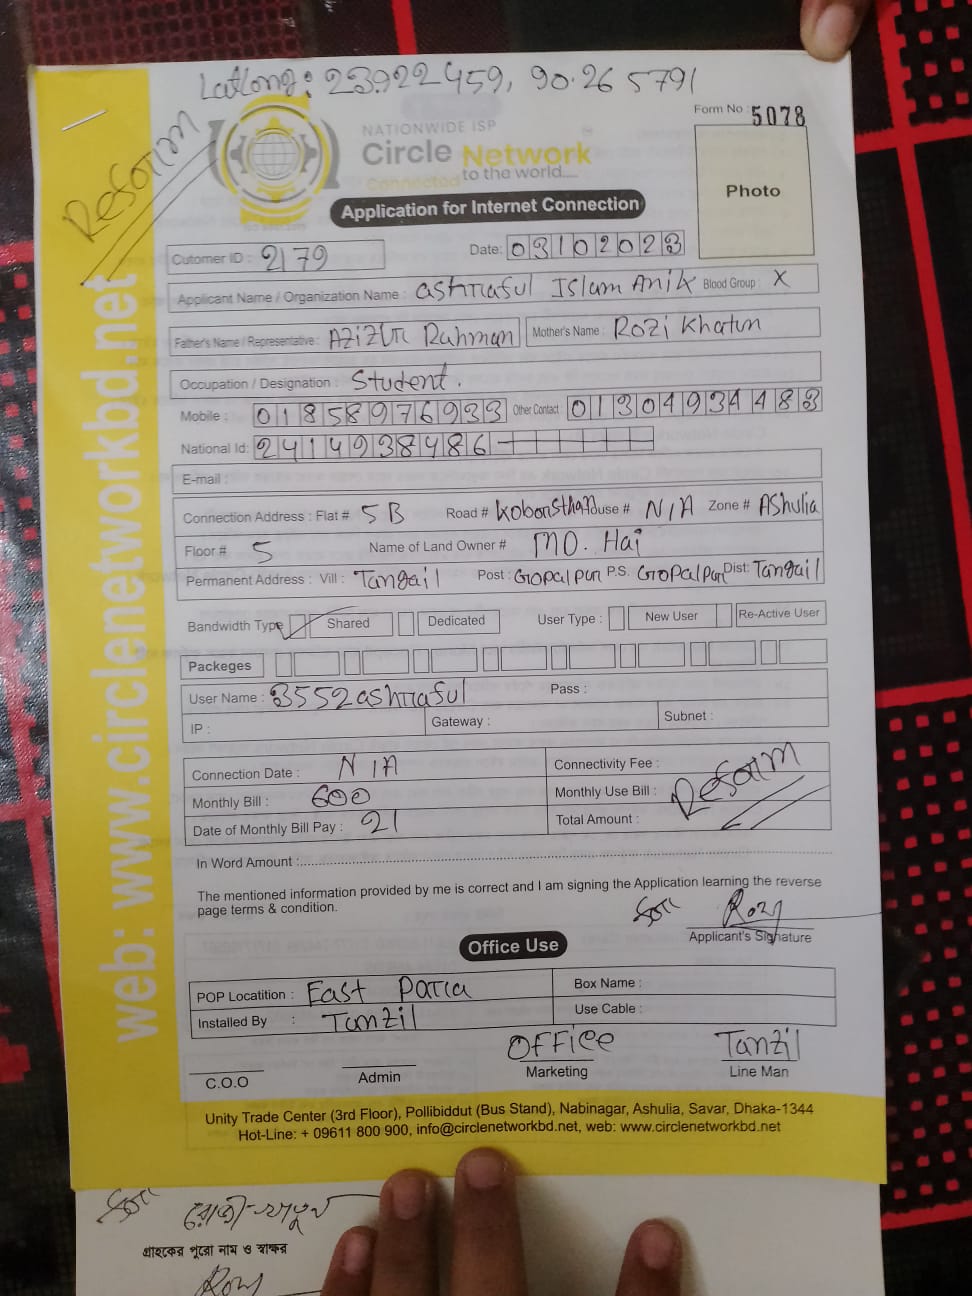 Latlong: 23.922459, 90.265791
Form No : 5078
Reform
NATIONWIDE ISP
Circle Network
Connected to the world....
Photo
Application for Internet Connection
Cutomer ID : 2179
Date: 03102023
Applicant Name / Organization Name : ashraful Islam Anik Blood Group : X
Father's Name / Representative : Azizur Rahman Mother's Name : Rozi Khatun
Occupation / Designation : Student.
Mobile : 01858976933 Other Contact : 01304934483
National Id: 2414938486
E-mail :
Connection Address : Flat # 5B Road # Koborsthan House # N/A Zone # AShulia
Floor # 5 Name of Land Owner # MD. Hai
Permanent Address : Vill : Tangail Post : Gopalpur P.S. Gopalpur Dist: Tangail
Bandwidth Type Shared Dedicated User Type : New User Re-Active User
Packeges
User Name : 3552ashraful Pass :
IP : Gateway : Subnet :
Connection Date : N/A Connectivity Fee :
Monthly Bill : 600 Monthly Use Bill :
Reform
Date of Monthly Bill Pay : 21 Total Amount :
In Word Amount :
The mentioned information provided by me is correct and I am signing the Application learning the reverse
page terms & condition.
Rozy
Applicant's Signature
Office Use
POP Locatition : East Para Box Name :
Installed By : Tanzil Use Cable :
OFFice Tanzil
C.O.O Admin Marketing Line Man
Unity Trade Center (3rd Floor), Pollibiddut (Bus Stand), Nabinagar, Ashulia, Savar, Dhaka-1344
Hot-Line: + 09611 800 900, info@circlenetworkbd.net, web: www.circlenetworkbd.net
web: www.circlenetworkbd.net
গ্রাহকের পুরো নাম ও স্বাক্ষর
Rozy